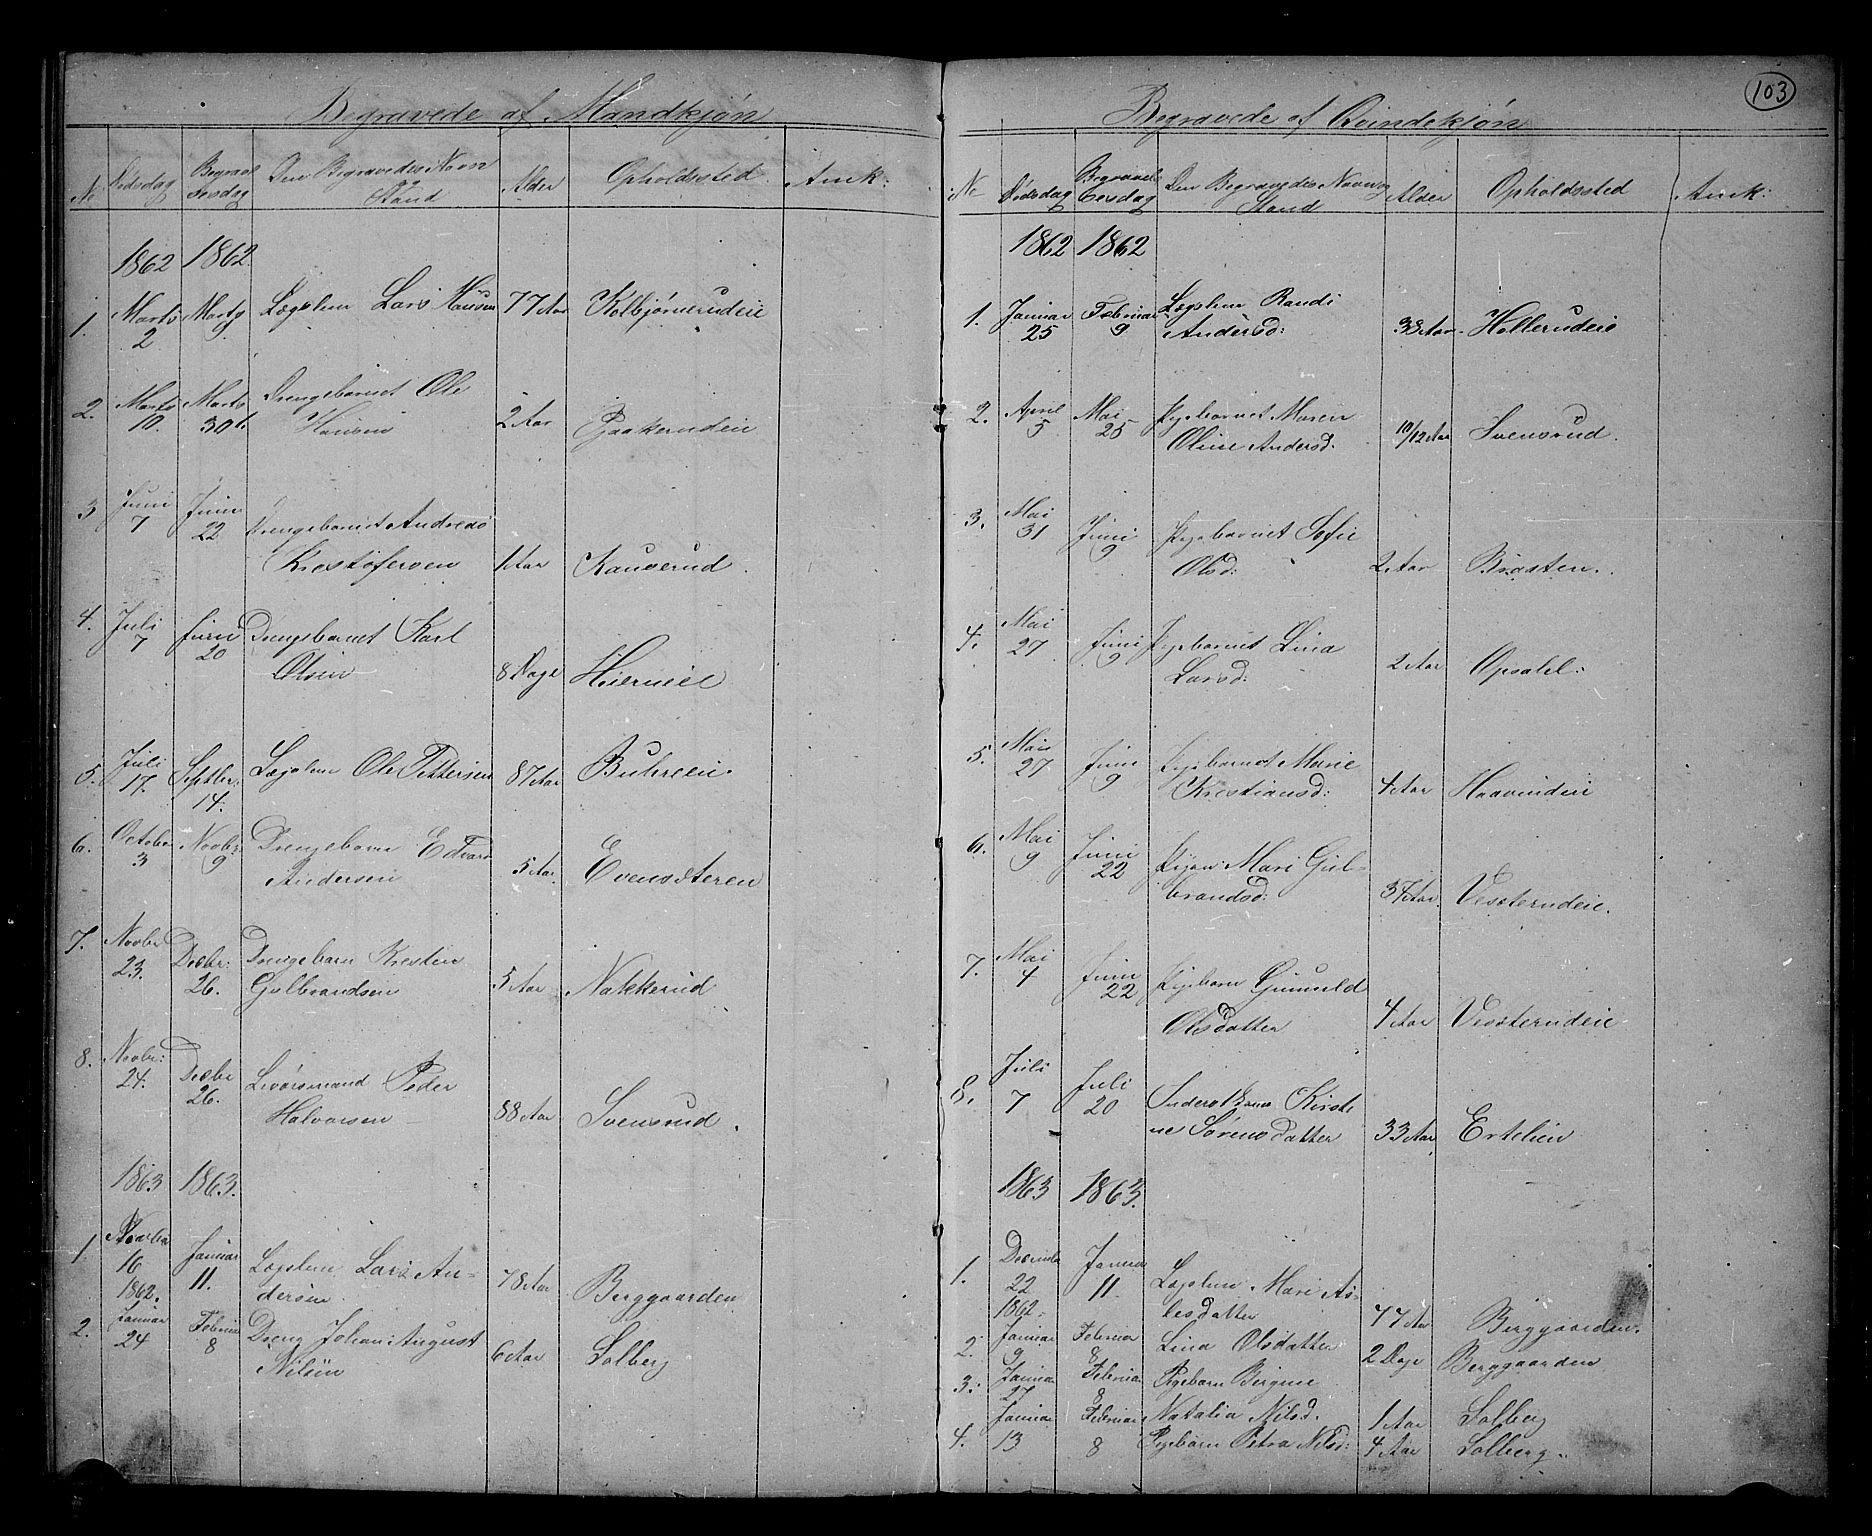 103
Begravede af Mandkjøn
No Dødsdag Begravelsesdag Den Begravedes Navn og Stand Alder Opholdssted Anmk:
1862 1862.
1. Marts 2 Marts 9 Lægslem Lars Hansen 77 Aar Kolbjørnsrudeie
2. Marts 10. Marts 30 Drengebarnet Ole
Hansen 2 Aar Gaakerudeie
3 Juni 7 Juni 22 Drengebarnet Andreas
Kristofersen 1 Aar Kauserud.
4. Juli 7 Juni 20 Drengebarnet Karl
Olsen 8 Dage
5. Juli 17. Septbr: 14. Lægslem Ole Pettersen 87 Aar
6. October 3 Novbr: 9 Drengebarn Edvard
Andersen 5 Aar Evensæteren
7. Novbr 23. Decbr: 26. Drengebarn Kresten
Gulbrandsen 5 Aar Nakkerud
8. Novbr: 24. Decbr 26. Livørsmand Peder
Halvorsen 88 Aar Svensrud.
1863 1863.
1. Novbr 16 1862. Januar 11. Lægslem Lars An-
dersen 78 Aar Berggaarden
2. Januar 24 Februar 8 Dreng Johan August
Nilsen 6 Aar Solberg
Begravede af Qvindekjøn
No Dødsdag Begravelsesdag Den Begravedes Navn og Stand Alder Opholdssted Anmk:
1862 1862
1. Januar 25 Februar 9 Lægslem Randi
Andersd: 33 Aar. Hollerudeie
2. April 5 Mai 25 Pigebarnet Maren
Oline Andersd. 10/12 Aar Svensrud.
3. Mai 31 Juni 9 Pigebarnet Sofie
Olsd: 2 Aar Braaten.
4. Mai 27 Juni 9 Pigebarnet Lina
Larsd: 2 Aar Opsahl:
5. Mai 27 Juni 9 Pigebarnet Marie
Kristiansd: 4 Aar
6. Mai 9 Juni 22 Pigen Mari Gul-
brandsd: 37 Aar. Vesterudeie.
7. Mai 4 Juni 22 Pigebarn Gunnild
Olsdatter 4 Aar Vesterudeie
8. Juli 7 Juli 20 Kirsti
ne Sørensdatter 33 Aar Ertelien
1863 1863.
1. December 22 1862. Januar 11. Lægslem Mari As-
lesdatter 77 Aar Berggaarden.
2. Januar 9 Februar 8 Lina Olsdatter 2 Dage Berggaarden
3. Januar 27 Februar 8 Pigebarn Bergine
Natalia Nilsd. 1 Aar Solberg
4. Januar 13 Februar 8 Pigebarn Petra Nilsd: 4 Aar Solberg.